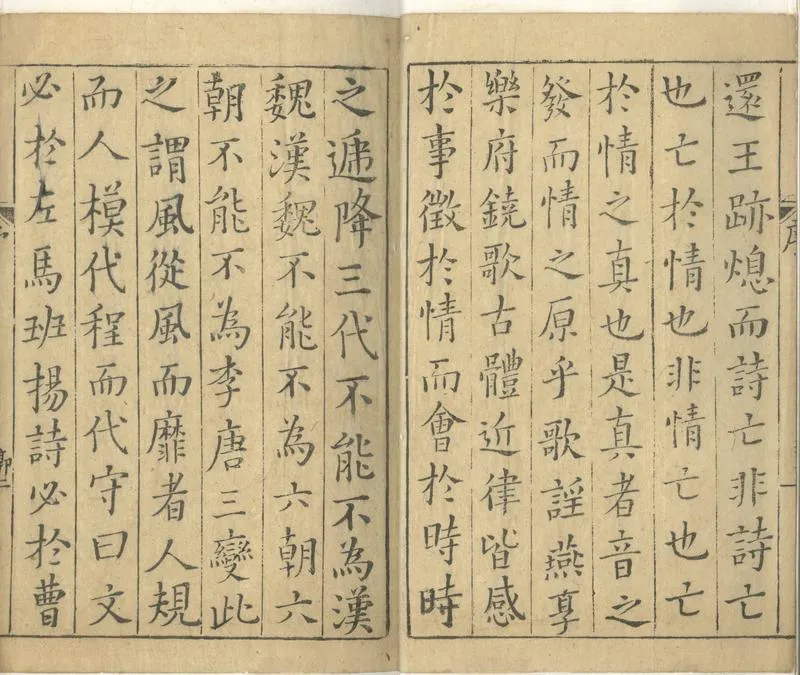 還王跡熄而詩亡非詩亡
也亡於情也非情亡也亡
於情之真也是真者音之
發而情之原乎歌謡燕享
樂府鐃歌古體近律皆感
於事徵於情而會於時時
之遞降三代不能不為漢
魏漢魏不能不為六朝六
朝不能不為李唐三變此
之謂風從風而靡者人規
而人模代程而代守曰文
必於左馬班揚詩必於曹
序
一